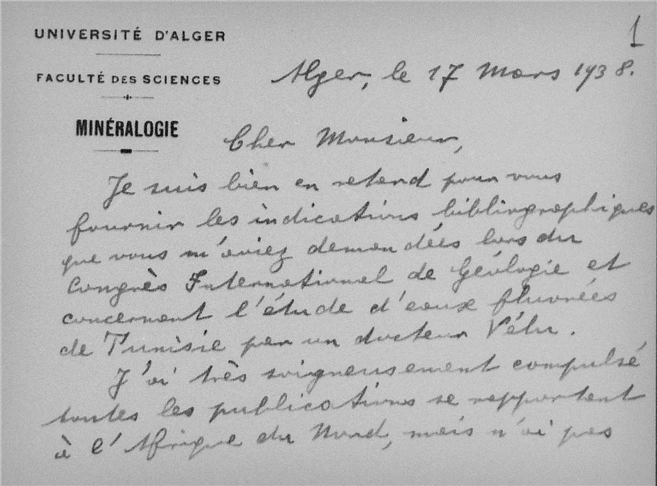 1
UNIVERSITÉ D'ALGER
FACULTÉ DES SCIENCES
MINÉRALOGIE
Alger, le 17 Mars 1938.
Cher Monsieur,
Je suis bien en retard pour vous
fournir les indications bibliographiques
que vous m'aviez demandées lors du
Congrès International de Géologie et
concernant l'étude d'eaux fluorées
de Tunisie par un docteur Vélu.
J'ai très soigneusement compulsé
toutes les publications se rapportant
à l'Afrique du Nord, mais n'ai pas